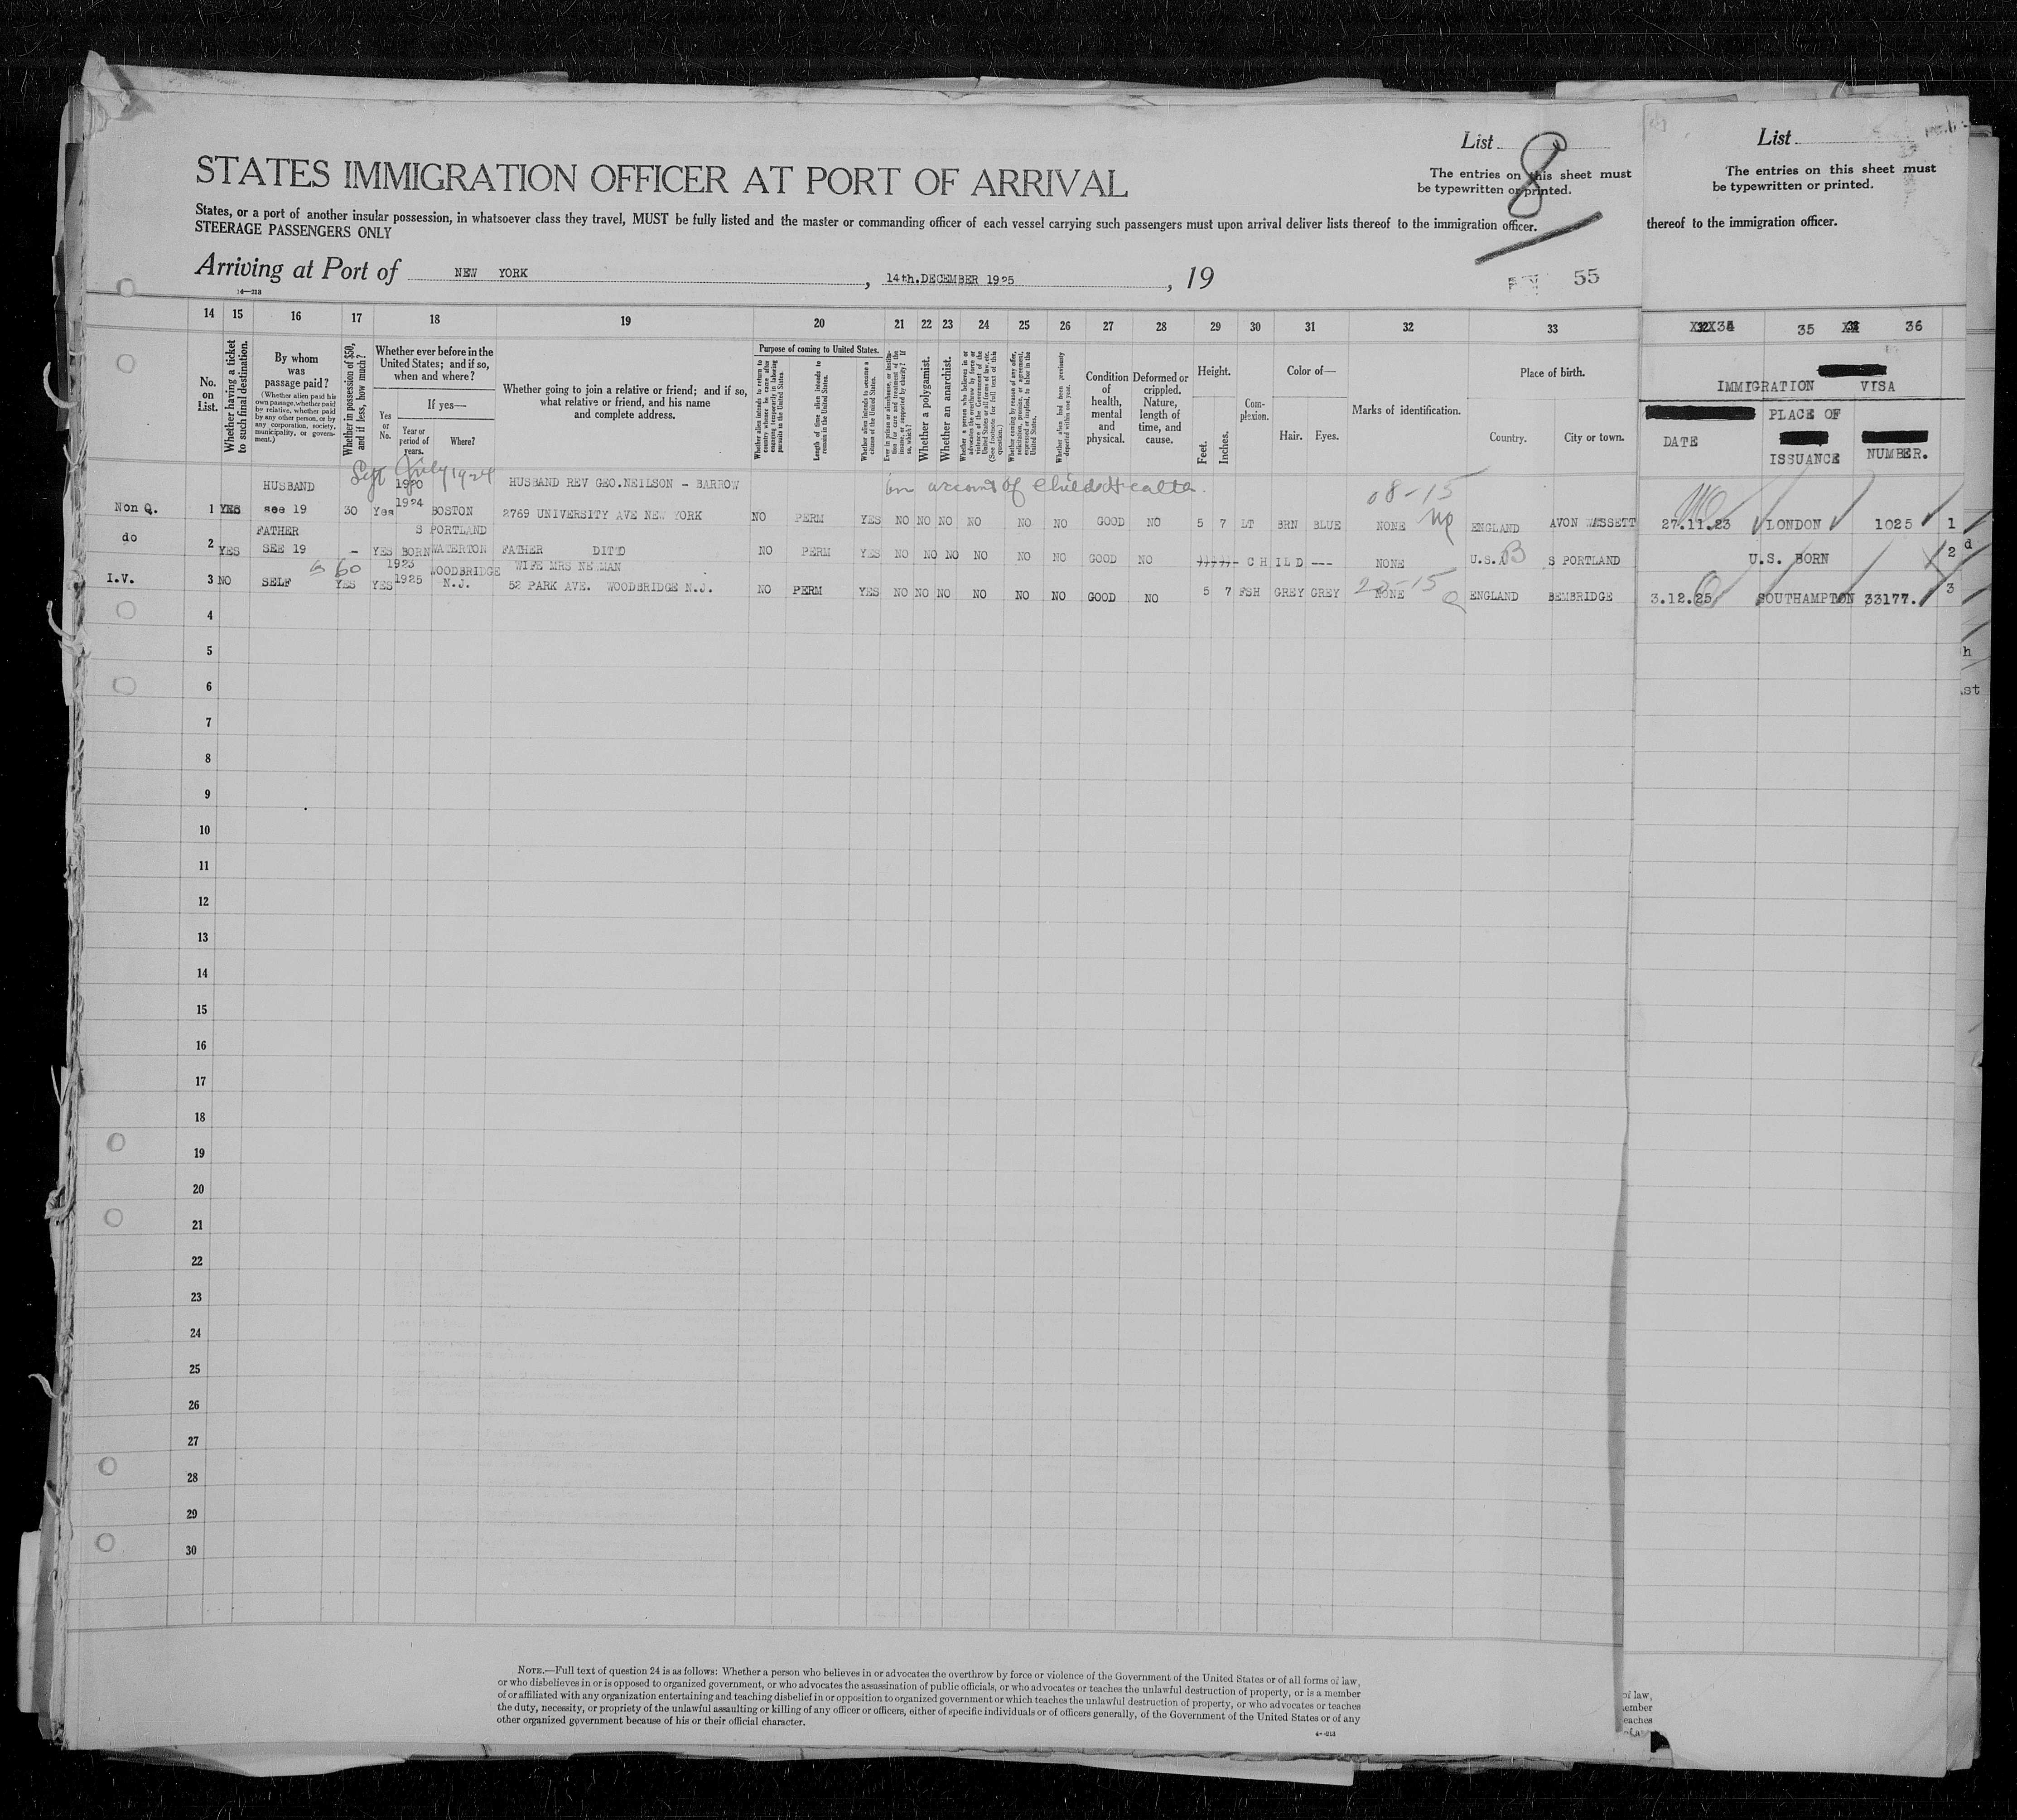 List 8
The entries on this sheet must
be typewritten or printed.
STATES IMMIGRATION OFFICER AT PORT OF ARRIVAL
States, or a port of another insular possession, in whatsoever class they travel, MUST be fully listed and the master or commanding officer of each vessel carrying such passengers must upon arrival deliver lists thereof to the immigration officer.
STEERAGE PASSENGERS ONLY
Arriving at Port of NEW YORK, 14th.DECEMBER 1925, 19
55
14—213
List
The entries on this sheet must
be typewritten or printed.
thereof to the immigration officer.
14 15 16 17 18 19 20 21 22 23 24 25 26 27 28 29 30 31 32 33 34 35 36
No. on List.
Whether having a ticket to such final destination.
By whom was passage paid?
(Whether alien paid his own passage, whether paid by relative, whether paid by any other person, or by any corporation, society, municipality, or government.)
Whether in possession of $50, and if less, how much?
Whether ever before in the United States; and if so, when and where?
Yes or No.
If yes—
Year or period of years.
Where?
Whether going to join a relative or friend; and if so, what relative or friend, and his name and complete address.
Purpose of coming to United States.
Whether alien intends to return to country whence he came after engaging temporarily in laboring pursuits in the United States
Length of time alien intends to remain in the United States.
Whether alien intends to become a citizen of the United States.
Ever in prison or almshouse, or institution for care and treatment of the insane, or supported by charity? If so, which?
Whether a polygamist.
Whether an anarchist.
Whether a person who believes in or advocates the overthrow by force or violence of the Government of the United States or all forms of law, etc. (See footnote for full text of this question.)
Whether coming by reason of any offer, solicitation, promise, or agreement, expressed or implied, to labor in the United States.
Whether alien had been previously deported within one year.
Condition of health, mental and physical.
Deformed or crippled. Nature, length of time, and cause.
Height.
Feet.
Inches.
Complexion.
Color of—
Hair.
Eyes.
Marks of identification.
Place of birth.
Country.
City or town.
IMMIGRATION VISA
DATE
PLACE OF
ISSUANCE
NUMBER.
Sept July 1924
on account of Childs Health.
08-15
HUSBAND 1920 HUSBAND REV GEO.NEILSON - BARROW
1924
Non Q. 1 YES see 19 30 Yes BOSTON 2769 UNIVERSITY AVE NEW YORK NO PERM YES NO NO NO NO NO NO GOOD NO 5 7 LT BRN BLUE NONE ENGLAND AVON WASSETT 27.11.23 LONDON 1025 1
FATHER S PORTLAND
do 2 YES SEE 19 - YES BORN WATERTON FATHER DITTO NO PERM YES NO NO NO NO NO NO GOOD NO CHILD --- NONE U.S.A B S PORTLAND U.S. BORN 2
60 1923 WOODBRIDGE WIFE MRS NEWMAN
I.V. 3 NO SELF YES YES 1925 N.J. 52 PARK AVE. WOODBRIDGE N.J. NO PERM YES NO NO NO NO NO NO GOOD NO 5 7 FSH GREY GREY NONE ENGLAND BEMBRIDGE 3.12.25 SOUTHAMPTON 33177. 3
4
5
6
7
8
9
10
11
12
13
14
15
16
17
18
19
20
21
22
23
24
25
26
27
28
29
30
NOTE.—Full text of question 24 is as follows: Whether a person who believes in or advocates the overthrow by force or violence of the Government of the United States or of all forms of law,
or who disbelieves in or is opposed to organized government, or who advocates the assassination of public officials, or who advocates or teaches the unlawful destruction of property, or is a member
of or affiliated with any organization entertaining and teaching disbelief in or opposition to organized government or which teaches the unlawful destruction of property, or who advocates or teaches
the duty, necessity, or propriety of the unlawful assaulting or killing of any officer or officers, either of specific individuals or of officers generally, of the Government of the United States or of any
other organized government because of his or their official character.
of law,
ember
eaches